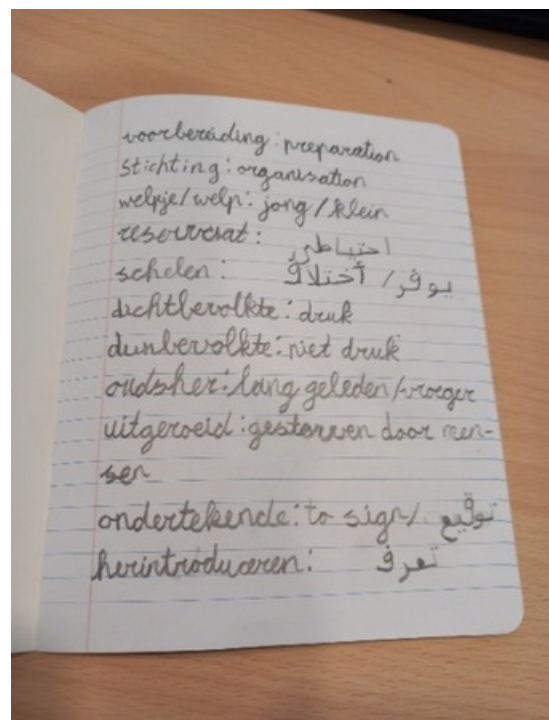 voorbereiding: preparation
stichting: organisation
welpje/welp: jong/klein
reservesat: احتياطي
schelen: يوفر/ أختلاف
dichtbevolkte: druk
dunbevolkte: niet druk
oudsher: lang geleden/vroeger
uitgeroeid: gestorven door men-
sen
ondertekende: to sign/ توقيع
herintroduceren: تعرف